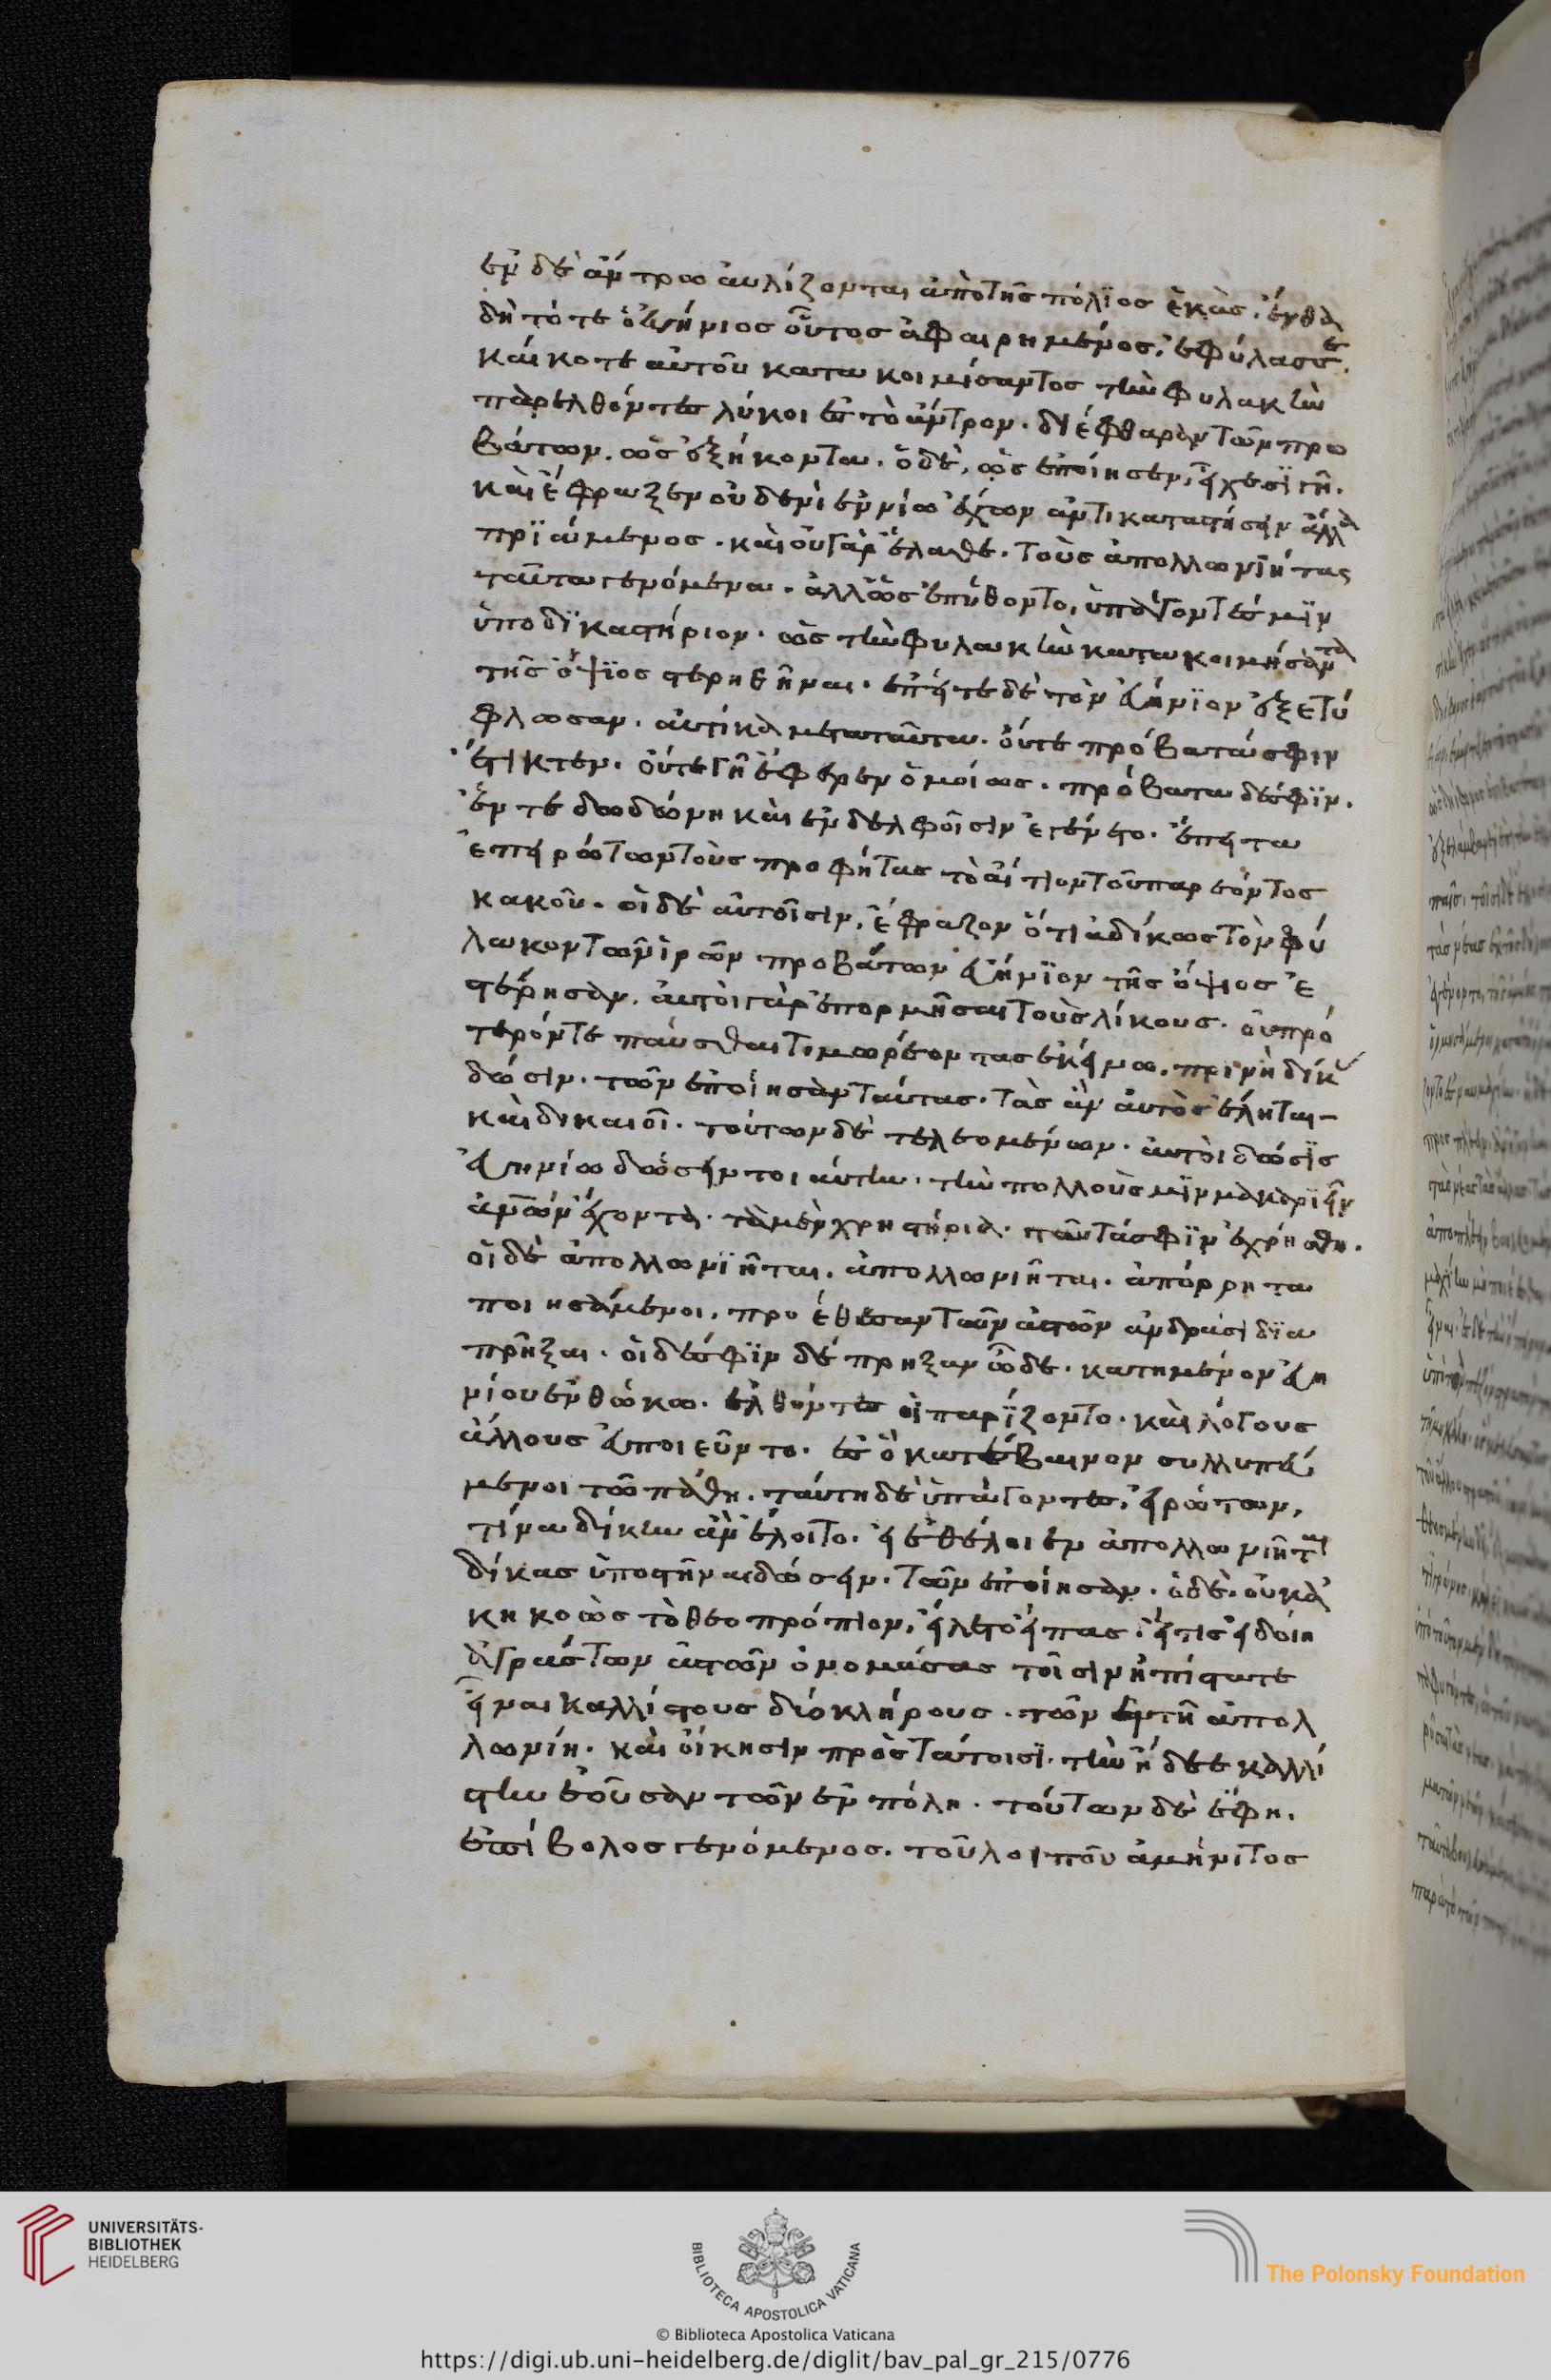 ἐν δὲ ἄντρω αὐλίζονται ἀπὸ τῆς πόλϊος ἑκὰς. ἔνθα
δὴ τότε ὁ εὐήνιος οὗτος ἀραιρημένος, ἐφύλασσε.
καί κοτε αὐτοῦ κατακοιμίσαντος τὴν φυλακὴν
παρελθόντες λύκοι ἐς τὸ ἄντρον. διέφθαραν τῶν προ
βάτων. ὡς ἑξήκοντα. ὁ δὲ, ὡς ἐποίησεν, εἶχε σϊγῆ.
καὶ ἔφραζεν οὐδενὶ ἐν νόω ἔχων ἀντικαταστήσειν ἄλλα
πρϊάμενος. καὶ οὐ γὰρ ἔλαθε. τοὺς ἀπολλωνϊήτας
ταῦτα γενόμενα. ἀλλ' ὡς ἐπύθοντο, ὑπάγοντές μϊν
ὑπὸ δϊκαστήριον. ὡς τὴν φυλακὴν κατακοιμήσαντα
τῆς ὄψϊος στερηθῆναι. ἐπεί τε δὲ τὸν εὐήνϊον ἐξετύ
φλωσαν. αὐτίκα μετα ταῦτα. οὔτε πρόβατά σφιν
ἔτικτεν. οὔτε γῆ ἔφερεν ὁμοίως. πρόβατα δέ σφϊν.
ἔν τε δωδώνη καὶ ἐν δελφοῖσιν ἐγένετο. ἔπειτα
ἐπειρώτων τοὺς προφήτας τὸ αἴτιον τοῦ παρεόντος
κακοῦ. οἱ δὲ αὐτοῖσιν, ἔφραζον ὅτι ἀδίκως τὸν φύ
λακον τῶν ἱρῶν προβάτων εὐήνϊον τῆς ὄψιος ἐ
στέρησαν. αὐτοὶ γὰρ ἐπορμῆσαι τοὺς λύκους. οὐ πρό
τερόν τε παύσεσθαι τιμωρέοντας ἐκείνω. πρὶν ἢ δίκας
δώσιν. τῶν ἐποίησαν ταύτας. τὰς ἂν αὐτὸς ἕληται
καὶ δικαιοῖ. τούτων δὲ τελεομένων. αὐτοὶ δώσϊς
εὐηνίω δώσειν τοιαύτην. τὴν πολλούς μϊν μακαρϊεῖν
ἀνῶν ἔχοντα. τὰ μὲν χρηστήρια. ταῦτά σφϊν ἐχρήσθη.
οἱ δὲ ἀπολλωνϊῆται. ἀπολλωνιῆται. ἀπόρρητα
ποιησάμενοι. προέθεσαν τῶν ἀστῶν ἀνδράσι δϊα
πρῆξαι. οἱ δέ σφϊν δέπρηξαν ὧδε. κατημένου εὐη
νίου ἐν θώκω. ἐλθόντες οἱ παρΐζοντο. καὶ λόγους
ἄλλους ἐποιεῦντο. ἐς ὃ κατέβαινον συλλυπεύ
μενοι τῶ πάθη. ταύτη δὲ ὑπάγοντες, εἰρώτων,
τίνα δίκην ἂν ἕλοιτο. εἰ ἐθέλοιεν ἀπολλωνιῆται
δίκας ὑποστῆναι δώσειν. τῶν ἐποίησαν. ὁ δὲ οὐκ ἀ
κηκοὼς τὸ θεοπρόπιον, εἵλετο εἴπας. εἴ τις εἰ δοίη
ἀγρούς τῶν ἀστῶν ὀνομάσας τοῖσιν ἠπίστατε
εἶναι καλλίστους δύο κλήρους. τῶν ἐν τῆ ἀπολ
λωνίη. καὶ οἴκησιν πρὸς τούτοισϊ. τὴν ἤδεε καλλί
στην ἐοῦσαν τῶν ἐν πόλη. τούτων δὲ ἔφη.
ἐπίβολος γενόμενος. τοῦ λοιποῦ ἀμήνϊτος
UNIVERSITÄTS-
BIBLIOTHEK
HEIDELBERG
BIBLIOTECA APOSTOLICA VATICANA
The Polonsky Foundation
© Biblioteca Apostolica Vaticana
https://digi.ub.uni-heidelberg.de/diglit/bav_pal_gr_215/0776